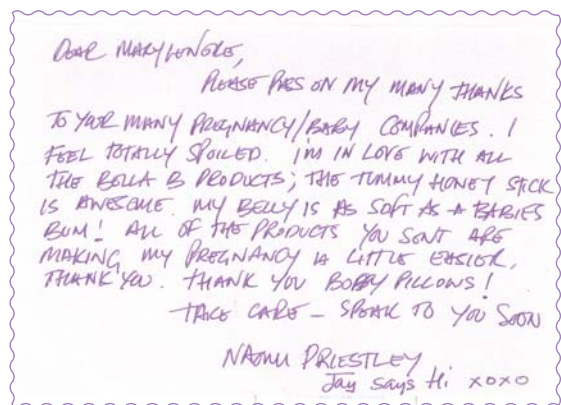 DEAR MARYLENORE,
PLEASE PASS ON MY MANY THANKS
TO YOUR MANY PREGNANCY/BABY COMPANIES. I
FEEL TOTALLY SPOILED. I'M IN LOVE WITH ALL
THE BELLA B PRODUCTS; THE TUMMY HONEY STICK
IS AWESOME. MY BELLY IS AS SOFT AS A BABIES
BUM! ALL OF THE PRODUCTS YOU SENT ARE
MAKING MY PREGNANCY A LITTLE EASIER.
THANK YOU. THANK YOU BOBBY PILLOWS!
TAKE CARE – SPEAK TO YOU SOON
NAOMI PRIESTLEY
Jay says Hi xoxo